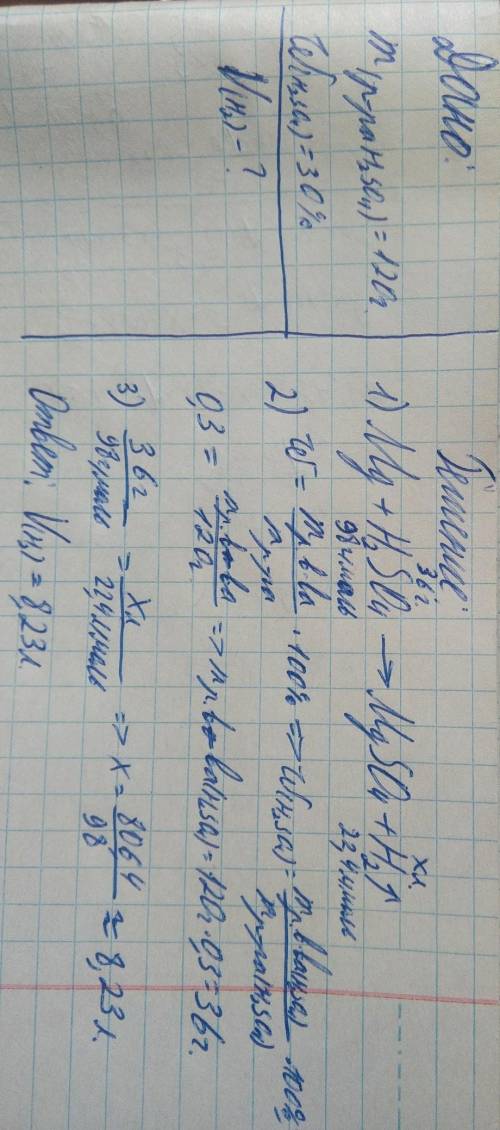 Дано:
m(р-ра H₂SO₄) = 120г
W(H₂SO₄) = 30%
V(H₂) - ?
Решение:
36г. xл
1) Mg + H₂SO₄ → MgSO₄ + H₂↑
98г/моль 22,4л/моль
2) W = mр.в-ва / mр-ра · 100% => W(H₂SO₄) = mр.в-ва(H₂SO₄) / mр-ра(H₂SO₄) · 100%
0,3 = mр.в-ва / 120г => mр.в-ва(H₂SO₄) = 120г · 0,3 = 36г.
3) 36г / 98г/моль = xл / 22,4л/моль => x = 806,4 / 98 ≈ 8,23л.
Ответ: V(H₂) = 8,23л.